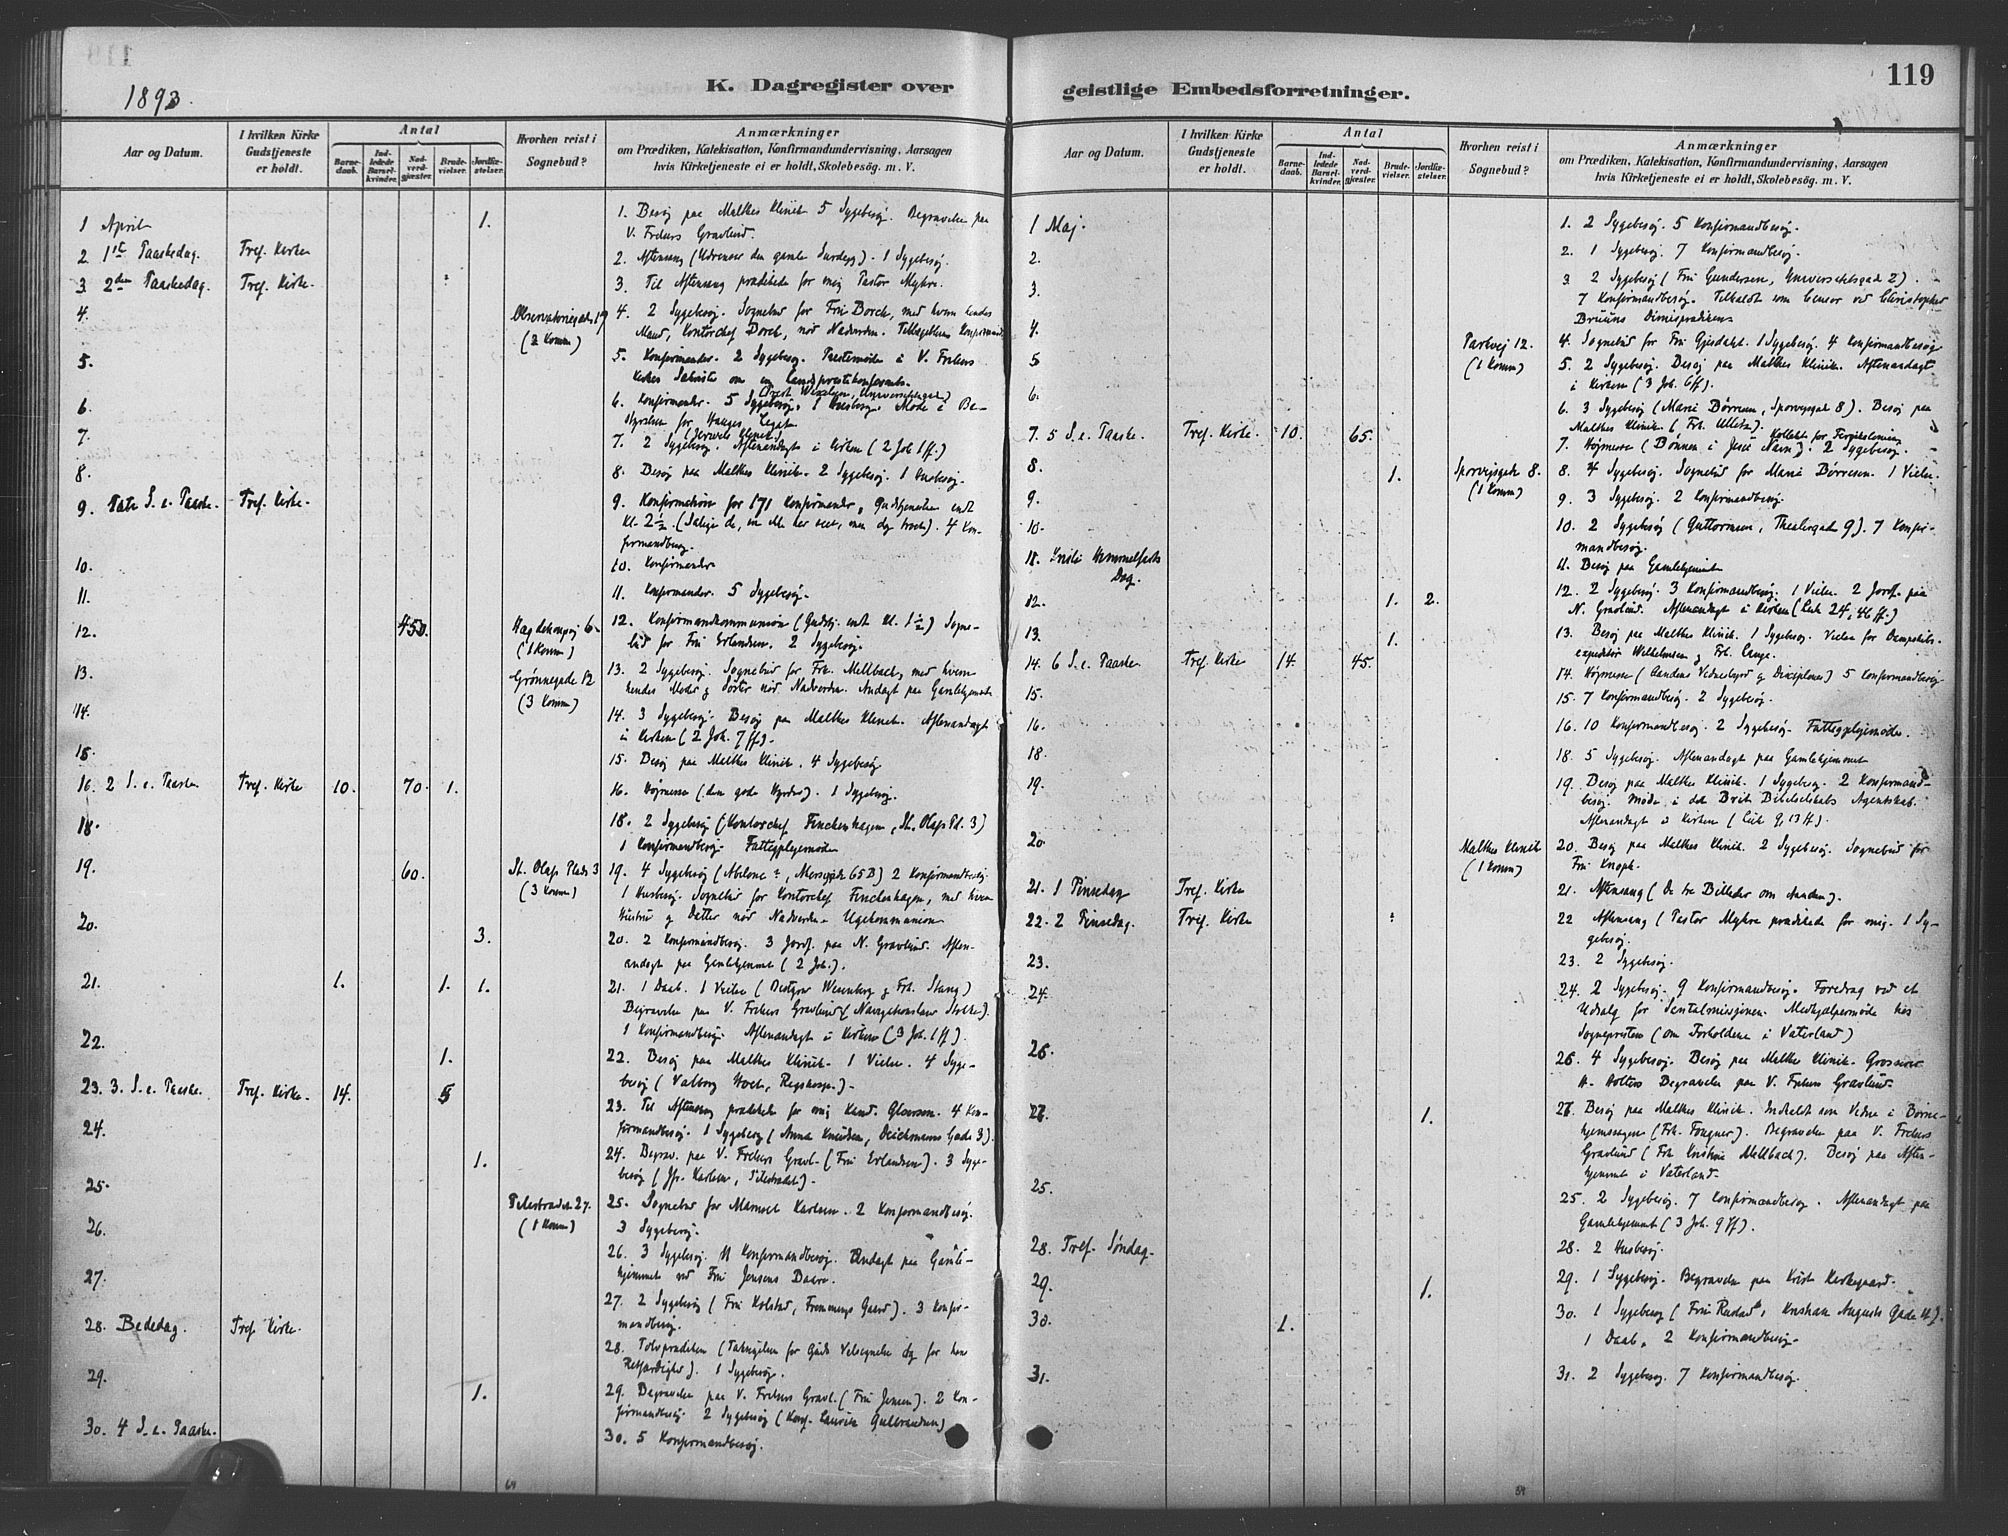 1893.
K. Dagregister over
Aar og Datum.
I hvilken Kirke Gudstjeneste er holdt.
Antal
Barnedaab.
Indledede Barselkvinder.
Nadverdgjæster.
Brudevielser.
Jordfæstelser.
Hvorhen reist i Sognebud?
Anmærkninger
om Prædiken, Katekisation, Konfirmandundervisning, Aarsagen
hvis Kirketjeneste ei er holdt, Skolebesøg. m. V.
1 April 1. 1. Besøg paa Malthes Klinik 5 Sygebesøg. Begravelse paa
V. Frelsers Gravlund.
2 1ste Paaskedag. Tref. Kirke 2. Aftensang (Udrenser den gamle Surdejg). 1 Sygebesøg.
3 2den Paaskedag. Tref. Kirke. 3. Til Aftensang prædikede for mig Pastor Myhre.
4. Observatoriegaden 19 (2 Komm) 4. 2 Sygebesøg. Sognebud for Fru Borch, med hvem hendes
Mand, Kontorchef Borch, nød Nadverden.
5. 5. Konfirmander. 2 Sygebesøg. Præstemøde i V. Frelsers
Kirkes Sakristi om en Landspræstekonferents.
6. 6. Konfirmander. 5 Sygebesøg. 1 Husbesøg. Møde i Be-
styrelsen for Hauges Legat.
7. 7. 2 Sygebesøg. Aftenandagt i Kirken (2 Joh 1 ff.)
8. 8. Besøg paa Malthes Klinik. 2 Sygebesøg. 1 Husbesøg.
9. 1ste S. e. Paaske. Tref. Kirke. 9. Konfirmation for 171 Konfirmander, Gudstjenesten endt
Kl. 2 1/2. (Salige de, som ikke har seet, men dog troet). 4 Kon-
firmandbesøg.
10. 10. Konfirmander
11. 11. Konfirmander. 5 Sygebesøg.
12. 450. Hegdehougsvej 6 (1 Komm) 12. Konfirmandkommunion (Gudstj. endt Kl. 1 1/2) Sogne-
bud for Fru Erlandsen. 2 Sygebesøg.
13. Grønnegade 12 (3 Komm) 13. 2 Sygebesøg. Sognebud for Frk. Mellbach, med hvem
hendes Moder og Søster nød Nadverden. Andagt paa Gamlehjemmet
14. 14. 3 Sygebesøg. Besøg paa Malthes Klinik. Aftenandagt
i Kirken (2 Joh. 7 ff).
15. 15. Besøg paa Malthes Klinik. 4 Sygebesøg
16. 2 S. e. Paaske Tref. Kirke 10. 70. 1. 16. Højmesse (den gode Hyrde). 1 Sygebesøg.
18. 18. 2 Sygebesøg (Kontorchef Finckenhagen, St. Olafs Pl. 3)
1 Konfirmandbesøg. Fattigplejemøde
19. 60. St. Olafs Plads 3 (3 Komm) 19. 4 Sygebesøg 2 Konfirmandbesøg.
1 Husbesøg. Sognebud for Kontorchef Finckenhagen, med hvem
Hustru og Datter nød Nadverden. Ugekommunion
20. 3. 20. 2 Konfirmandbesøg. 3 Jordf. paa N. Gravlund. Aften-
andagt paa Gamlehjemmet (2 Joh.).
21. 1. 1. 1. 21. 1 Daab. 1 Vielse
Begravelse paa V. Frelsers Gravlund
1 Konfirmandbesøg. Aftenandagt i Kirken (3 Joh. 1 ff).
22. 1. 22. Besøg paa Malthes Klinik. 1 Vielse. 4 Syge-
besøg
23. 3. S. e. Paaske. Tref. Kirke. 14. 5 23. Til Aftensang prædikede for mig Kand. 4 Kon-
firmandbesøg. 1 Sygebesøg (Anna Knudsen, Deichmanns Gade 3).
24. 1. 24. Begrav. paa V. Frelsers Gravl. (Fru Erlandsen). 3 Syge-
besøg (Jfr. Karlsen, Pilestrædet).
25. Pilestrædet 27. (1 Komm) 25. Sognebud for Mamsel Karlsen. 2 Konfirmandbesøg.
3 Sygebesøg.
26. 26. 3 Sygebesøg. 11 Konfirmandbesøg. Andagt paa Gamle-
hjemmet ved Fru Jensens Baare.
27. 27. 2 Sygebesøg 3 Konfir-
mandbesøg.
28. Bededag. Tref. Kirke. 28. Tolvprædiken
1 Sygebesøg.
29. 1. 29. Begravelse paa V. Frelsers Gravl. (Fru Jensen). 2 Kon-
firmandbesøg. 2 Sygebesøg
30. 4 S. e. Paaske. 30. 5 Konfirmandbesøg.
64
geistlige Embedsforretninger.
119
Aar og Datum.
I hvilken Kirke Gudstjeneste er holdt.
Antal
Barnedaab.
Indledede Barselkvinder.
Nadverdgjæster.
Brudevielser.
Jordfæstelser.
Hvorhen reist i Sognebud?
Anmærkninger
om Prædiken, Katekisation, Konfirmandundervisning, Aarsagen
hvis Kirketjeneste ei er holdt, Skolebesøg. m. V.
1 Maj. 1. 2 Sygebesøg. 5 Konfirmandbesøg.
2. 2. 1 Sygebesøg. 7 Konfirmandbesøg.
3. 3 2 Sygebesøg (Fru Gundersen, Universitetsgad 2).
7 Konfirmandbesøg. Tilkaldt som Censor ved Christopher
Bruuns Dimisprædiken
4. Parkvej 12. (1 Komm) 4. Sognebud for Fru Gjesdahl. 1 Sygebesøg. 4 Konfirmandbesøg
5 5. 2 Sygebesøg. Besøg paa Malthes Klinik. Aftenandagt
i Kirken (3 Joh. 6 ff).
6. 6. 3 Sygebesøg (Marie Børresen, Sporvejsgad 8). Besøg paa
Malthes Klinik
7. 5 S. e. Paaske. Tref. Kirke. 10. 65. 7. Højmesse (Bønnen i Jesu Navn). 2 Sygebesøg.
8. 1. Sporvejsgade 8. (1 Komm) 8. 4 Sygebesøg. Sognebud for Marie Børresen. 1 Vielse.
9. 9. 3 Sygebesøg. 2 Konfirmandbesøg
10. 10. 2 Sygebesøg (Guttormsen, Theatergad 9). 7 Konfir-
mandbesøg.
11. Kristi Himmelfarts Dag. 11. Besøg paa Gamlehjemmet
12. 1. 2. 12. 2 Sygebesøg. 3 Konfirmandbesøg. 1 Vielse. 2 Jordf. paa
N. Gravlund. Aftenandagt i Kirken (Luk 24, 46 ff.)
13. 1. 13. Besøg paa Malthes Klinik. 1 Sygebesøg. Vielse for Dampskibs-
expeditør Wilhelmsen og Frk. Lange.
14. 6 S. e. Paaske Tref. Kirke 14. 45. 14. Højmesse (Aandens Vidnesbyrd og Disciplenes) 5 Konfirmandbesøg
15. 15. 7 Konfirmandbesøg. 2 Sygebesøg.
16. 16. 10 Konfirmandbesøg. 2 Sygebesøg. Fattigplejemøde.
18. 18. 5 Sygebesøg. Aftenandagt paa Gamlehjemmet
19. 19. Besøg paa Malthes Klinik. 1 Sygebesøg. 2 Konfirmand-
besøg. Møde i det Brit. Bibelselskabs Agentskab.
Aftenandagt i Kirken (Luk 9, 13 ff).
20 Malthes Klinik (1 Komm) 20. Besøg paa Malthes Klinik. 2 Sygebesøg. Sognebud for
Fru Knoph.
21. 1 Pinsedag Tref. Kirke 21. Aftensang (De tre Billeder om Aanden).
22. 2 Pinsedag. Tref. Kirke 22 Aftensang (Pastor Myhre prædikede for mig. 1 Sy-
gebesøg.
23. 23. 2 Sygebesøg.
24. 24. 2 Sygebesøg. 9 Konfirmandbesøg. Foredrag ved et
Udsalg for Santalmissionen. Medhjælpermøde hos
Sognepresten (om Forholdene i Vaterland)
26. 26. 4 Sygebesøg. Besøg paa Malthes Klinik. Grosserer
H. Holters Begravelse paa V. Frelsers Gravlund.
27. 1. 27. Besøg paa Malthes Klinik. Indkaldt som Vidne i Børne-
hjemssagen (Frk. Fougner). Begravelse paa V. Frelsers
Gravlund (Frk Kristine Mellbach). Besøg paa Aften-
hjemmet i Vaterland.
25. 25. 2 Sygebesøg. 7 Konfirmandbesøg. Aftenandagt paa
Gamlehjemmet (3 Joh. 9 ff).
28. Tref. Søndag. 28. 2 Husbesøg.
29. 1. 29. 1 Sygebesøg. Begravelse paa Krist Kirkegaard.
30. 1. 30. 1 Sygebesøg
1 Daab. 2 Konfirmandbesøg.
31. 31. 2 Sygebesøg. 7 Konfirmandbesøg.